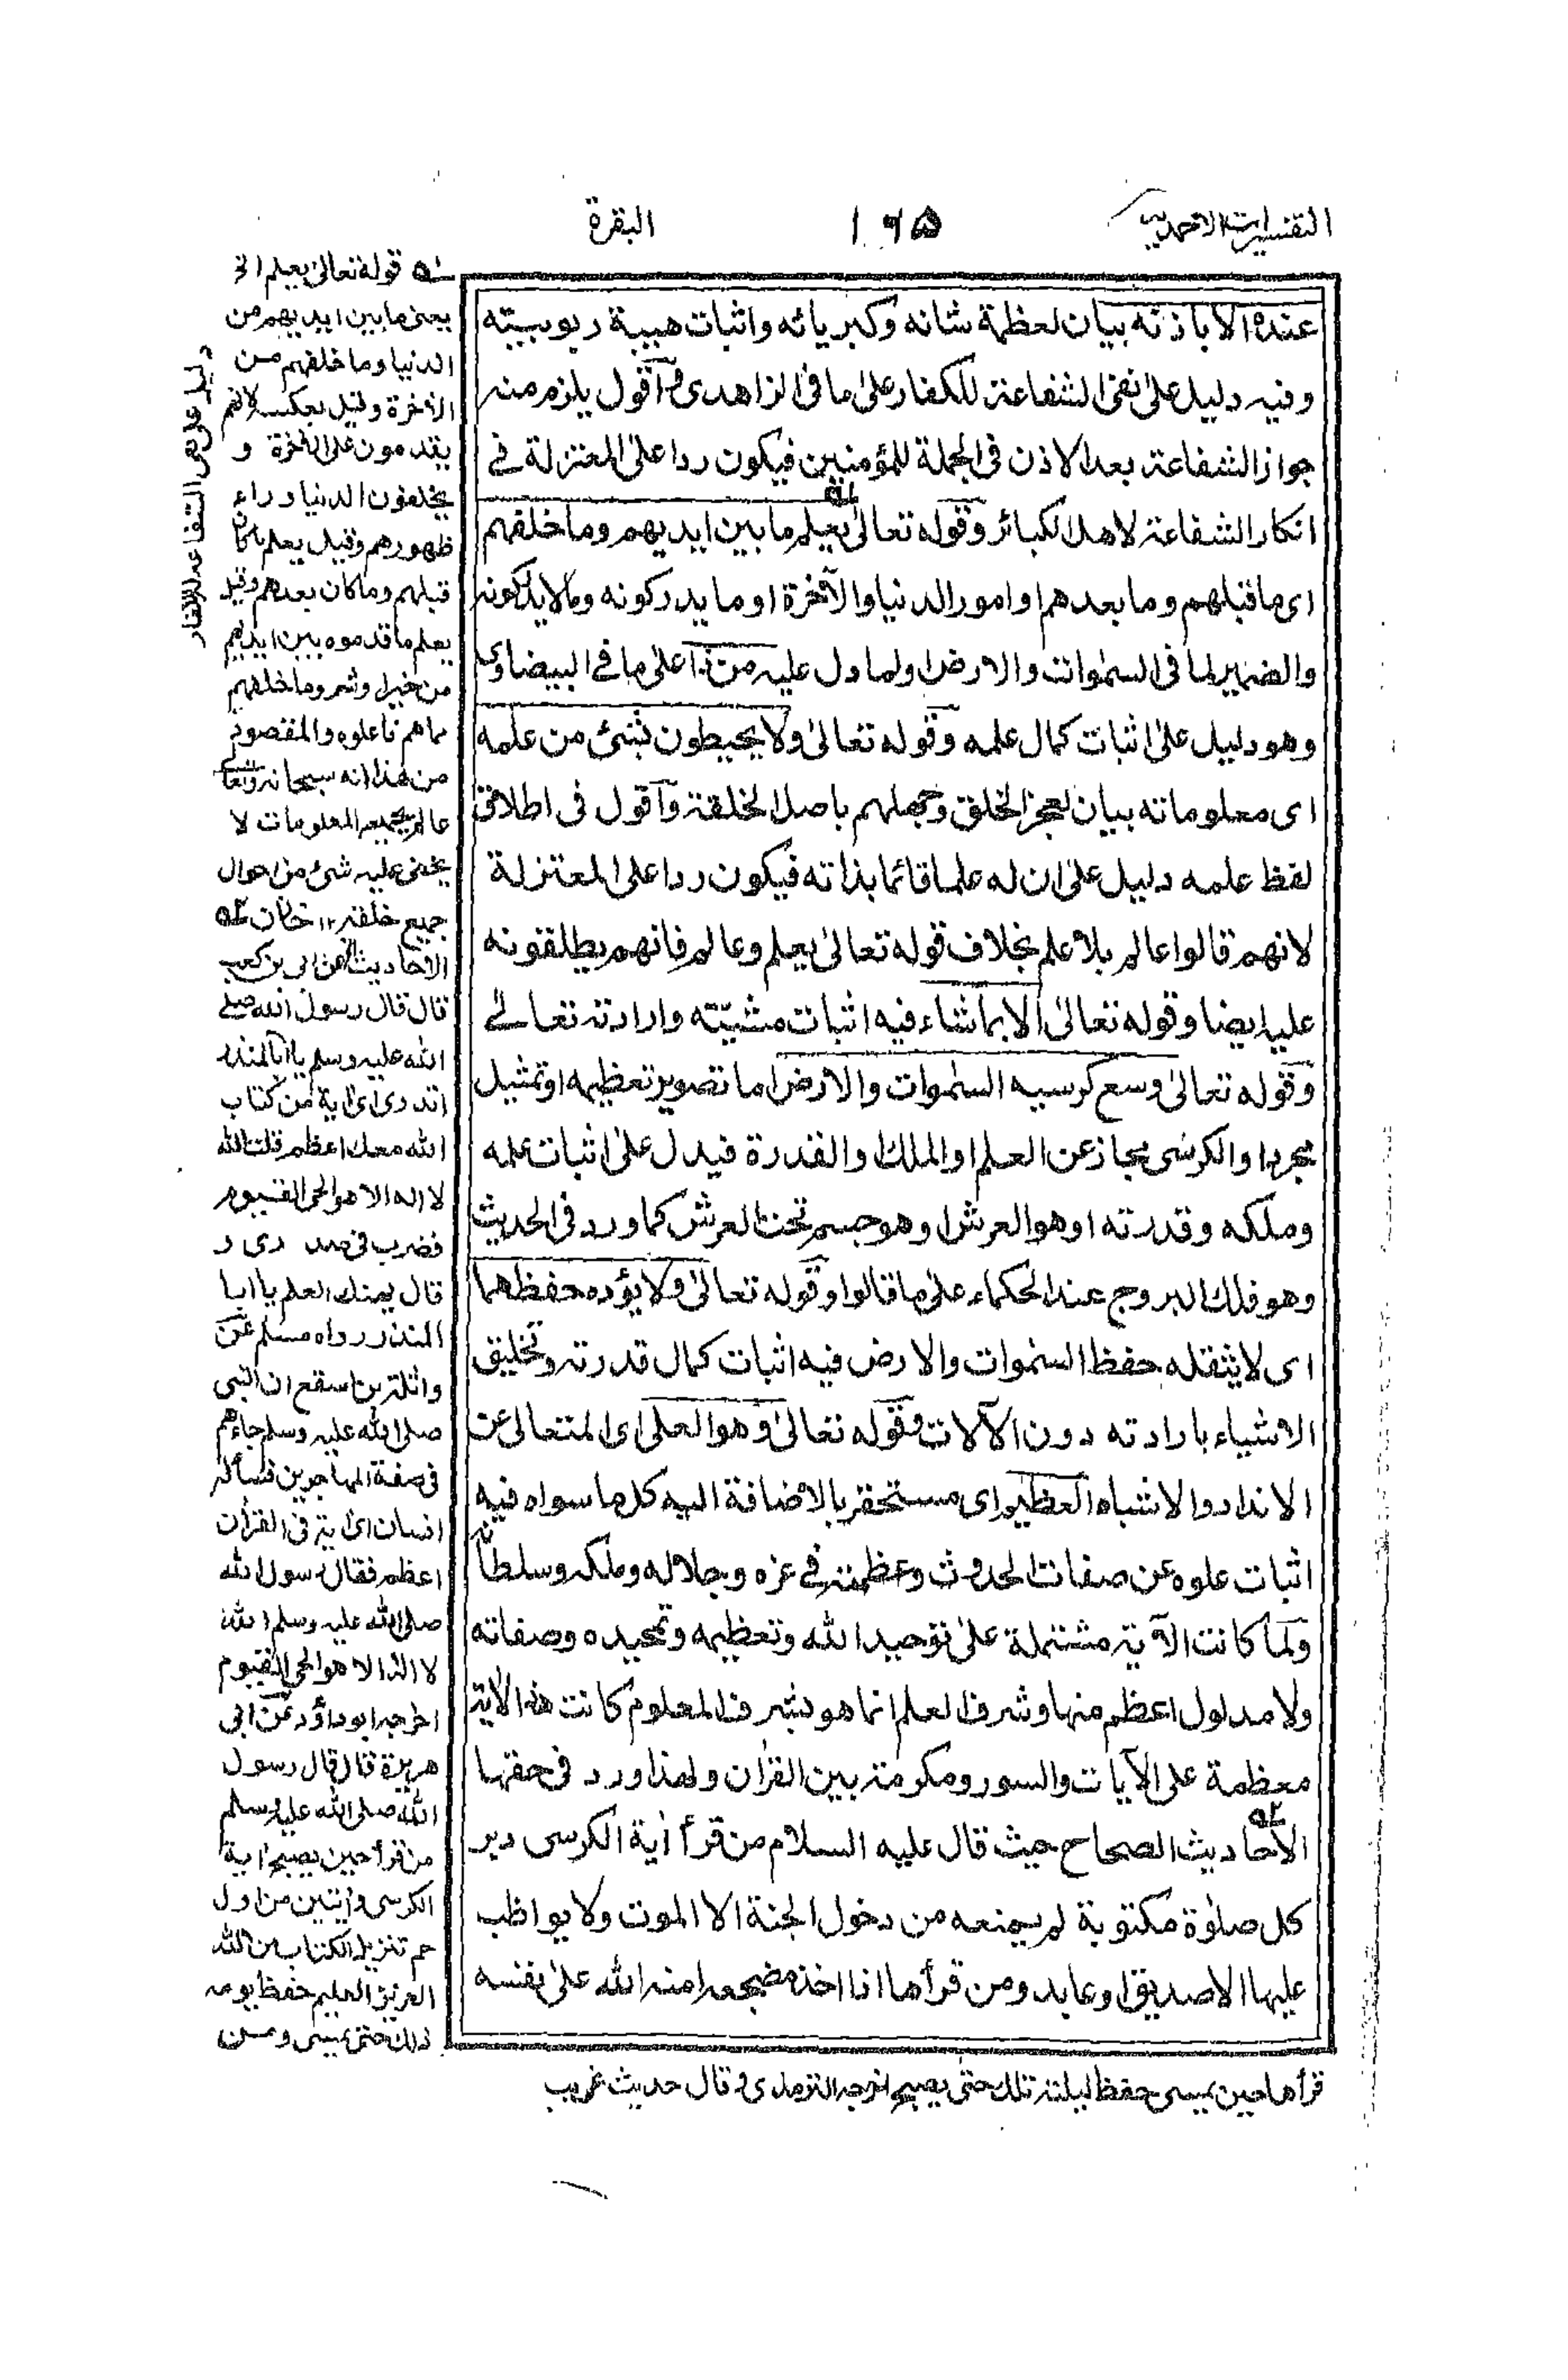 التفسيرات الاحمدية
١٦٥
البقرة
عنده الا باذنه بيان لعظمة شانه وكبريائه واثبات هيبة ربوبيته
وفيه دليل على نفى الشفاعة للكفار على ما فى الزاهدى واقول يلزم منه
جواز الشفاعة بعد الاذن فى الجملة للمؤمنين فيكون ردا على المعتزلة فى
انكار الشفاعة لاهل الكبائر وقوله تعالىٰ يعلم ما بين ايديهم وما خلفهم
اى ما قبلهم وما بعدهم او امور الدنيا والآخرة او ما يدركونه وما لا يدركونه
والضمير لما فى السمٰوات والارض او لما دل عليه من ذا على ما فى البيضاوى
وهو دليل علىٰ اثبات كمال علمه وقوله تعالىٰ ولا يحيطون بشئ من علمه
اى معلوماته بيان لعجز الخلق وجهلهم باصل الخلقة واقول فى اطلاق
لفظ علمه دليل علىٰ ان له علما قائما بذاته فيكون ردا على المعتزلة
لانهم قالوا عالم بلا علم بخلاف قوله تعالىٰ يعلم وعالم فانهم يطلقونه
عليه ايضا وقوله تعالىٰ الا بما شاء فيه اثبات مشيّته وارادته تعالىٰ
وقوله تعالىٰ وسع كرسيه السمٰوات والارض اما تصوير تعظيمه او تمثيل
مجرد او الكرسى مجاز عن العلم او الملك او القدرة فيدل علىٰ اثبات علمه
وملكه وقدرته او هو العرش او هو جسم تحت العرش كما ورد فى الحديث
وهو فلك البروج عند الحكماء علىٰ ما قالوا وقوله تعالىٰ ولا يؤده حفظهما
اى لا يثقله حفظ السمٰوات والارض فيه اثبات كمال قدرته وتخليق
الاشياء بارادته دون الآلات وقوله تعالىٰ وهو العلى اى المتعالى عن
الانداد والاشباه العظيم اى مستحقر بالاضافة اليه كل ما سواه فيه
اثبات علوه عن صفات الحدوث وعظمته فى عزه وجلاله وملكه وسلطانه
ولما كانت الآية مشتملة علىٰ توحيد الله وتعظيمه وتمجيده وصفاته
ولا مدلول اعظم منها وشرف العلم انما هو بشرف المعلوم كانت هذه الاية
معظمة على الآيات والسور ومكرمة بين القرٰان ولهذا ورد فى حقها
الاحاديث الصحاح حيث قال عليه السلام من قرأ اٰية الكرسى دبر
كل صلٰوة مكتوبة لم يمنعه من دخول الجنة الا الموت ولا يواظب
عليها الا صديق او عابد ومن قرأها اذا اخذ مضجعه امنه الله علىٰ نفسه
دليل على نفى الشفاعه للكفار
قوله تعالىٰ يعلم الخ
يعنى ما بين ايديهم من
الدنيا وما خلفهم من
الاخرة وقيل بعكسه لانهم
يقدمون على الاخرة و
يخلفون الدنيا وراء
ظهورهم وقيل يعلم ما كان
قبلهم وما كان بعدهم وقيل
يعلم ما قدموه بين ايديهم
من خير او شر وما خلفهم
مما هم فاعلوه والمقصود
من هذا انه سبحانه وتعالى
عالم بجميع المعلومات لا
يخفى عليه شئ من احوال
جميع خلقه ١٢ خازن
الاحاديث الخ عن ابى بن كعب
قال قال رسول الله صلى
الله عليه وسلم يا ابا المنذر
اتدرى اى اٰية من كتاب
الله معك اعظم قلت الله
لا اله الا هو الحى القيوم
فضرب فى صدرى و
قال يهنك العلم يا ابا
المنذر رواه مسلم عن
واثلة بن اسقع ان النبى
صلى الله عليه وسلم جاءهم
فى صفة المهاجرين فسأله
انسان اى اٰية فى القرٰان
اعظم فقال رسول الله
صلى الله عليه وسلم الله
لا اله الا هو الحى القيوم
اخرجه ابو داؤد عن ابى
هريرة قال قال رسول
الله صلى الله عليه وسلم
من قرأ حين يصبح اية
الكرسى واٰيتين من اول
حم تنزيل الكتاب من الله
العزيز العليم حفظ يومه
ذلك حتىٰ يمسى ومن
قرأها حين يمسى حفظ ليلته تلك حتىٰ يصبح اخرجه الترمذى وقال حديث غريب